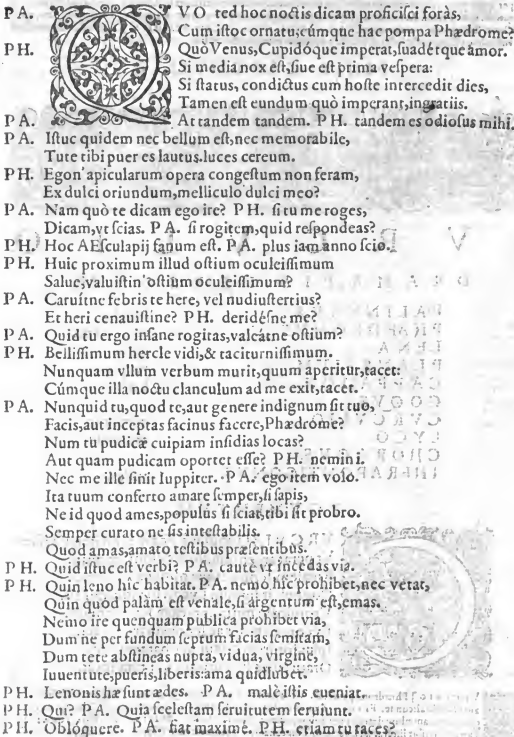 PA. QVO ted hoc noctis dicam proficisci foràs,
Cum istoc ornatu, cúmque hac pompa Phædrome?
PH. Quò Venus, Cupidóque imperat, suadétque amor.
Si media nox est, siue est prima vespera:
Si status, condictus cum hoste intercedit dies,
Tamen est eundum quò imperant, ingratiis.
PA. At tandem tandem. PH. tandem es odiosus mihi.
PA. Istuc quidem nec bellum est, nec memorabile,
Tute tibi puer es lautus. luces cereum.
PH. Egon' apicularum opera congestum non feram,
Ex dulci oriundum, melliculo dulci meo?
PA. Nam quò te dicam ego ire? PH. si tu me roges,
Dicam, vt scias. PA. si rogitem, quid respondeas?
PH. Hoc AEsculapij fanum est. PA. plus iam anno scio.
PH. Huic proximum illud ostium oculeissimum
Salue, valuistin' ostium oculeissimum?
PA. Caruítne febris te here, vel nudiustertius?
Et heri cenauistine? PH. deridésne me?
PA. Quid tu ergo insane rogitas, valeátne ostium?
PH. Bellissimum hercle vidi, & taciturnissimum.
Nunquam vllum verbum murit, quum aperitur, tacet:
Cúmque illa noctu clanculum ad me exit, tacet.
PA. Nunquid tu, quod te, aut genere indignum sit tuo,
Facis, aut inceptas facinus facere, Phædrome?
Num tu pudicæ cuipiam insidias locas?
Aut quam pudicam oportet esse? PH. nemini.
Nec me ille sinit Iuppiter. PA. ego item volo.
Ita tuum conferto amare semper, si sapis,
Ne id quod ames, populus si sciat, tibi sit probro.
Semper curato ne sis intestabilis.
Quod amas, amato testibus præsentibus.
PH. Quid istuc est verbi? PA. cautè vt incedas via.
PH. Quin leno hîc habitat. PA. nemo hîc prohibet, nec vetat,
Quin quòd palàm est venale, si argentum est, emas.
Nemo ire quenquam publica prohibet via,
Dum ne per fundum septum facias semitam,
Dum tete abstineas nupta, vidua, virgine,
Iuuentute, pueris, liberis: ama quidlubet.
PH. Lenonis hæ sunt ædes. PA. malè istis eueniat.
PH. Qui? PA. Quia scelestam seruitutem seruiunt.
PH. Oblóquere. PA. fiat maximé. PH. etiam tu taces?